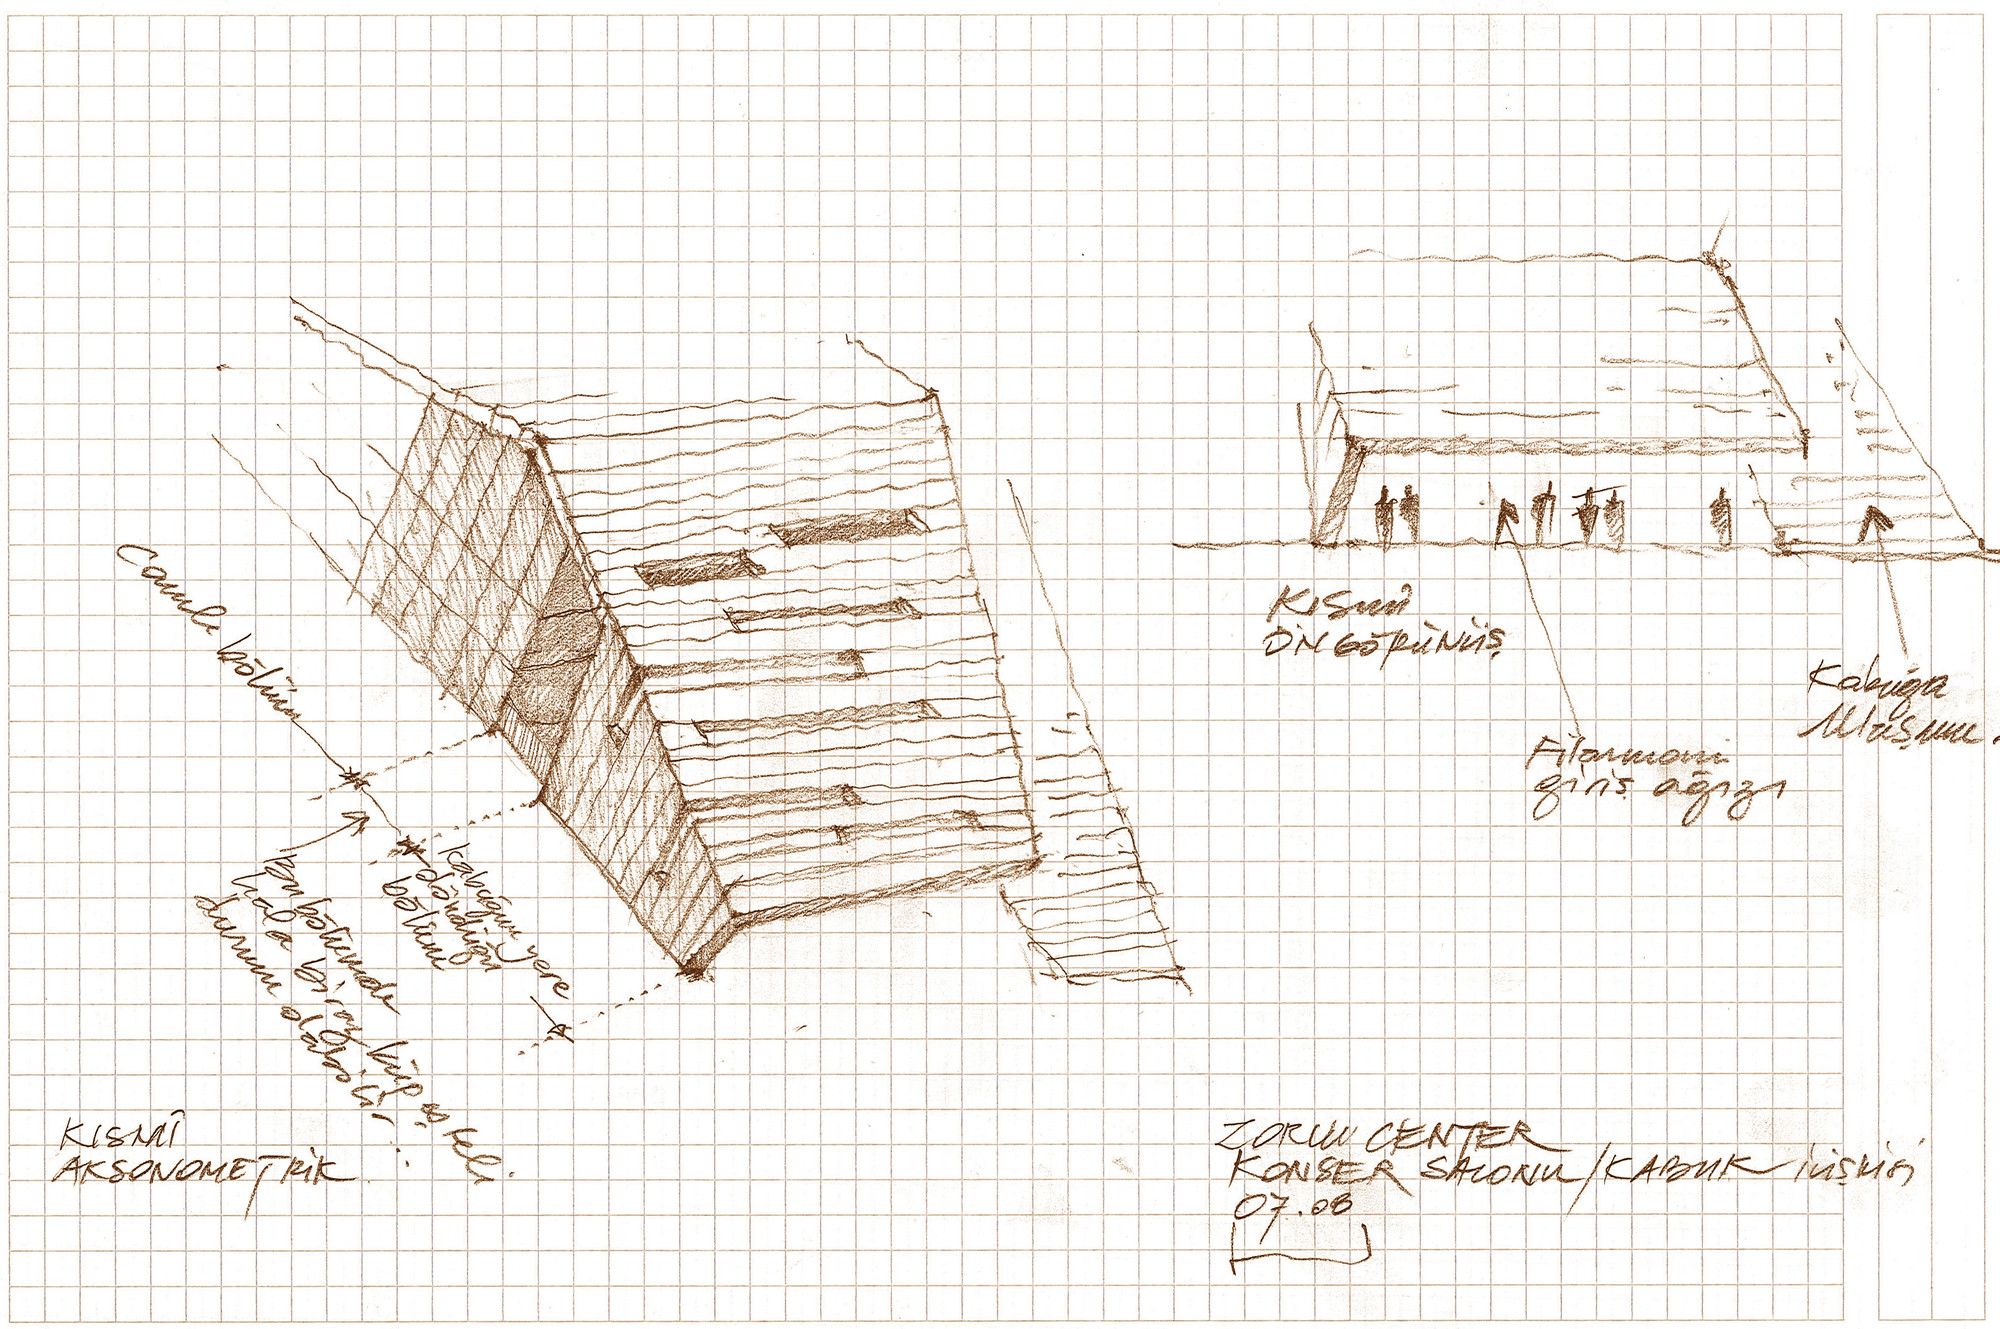 Camlı bölüm
kabuğun yere
döndüğü
bölüm
bu bölümde
hala biraz küp estetiği
durumu olabilir...
KISMİ
AKSONOMETRİK
KISMİ
ÖN GÖRÜNÜŞ
Filarmoni
giriş ağızı
Kabuğa
ZORLU CENTER
KONSER SALONU/KABUK ilişkisi
07.08